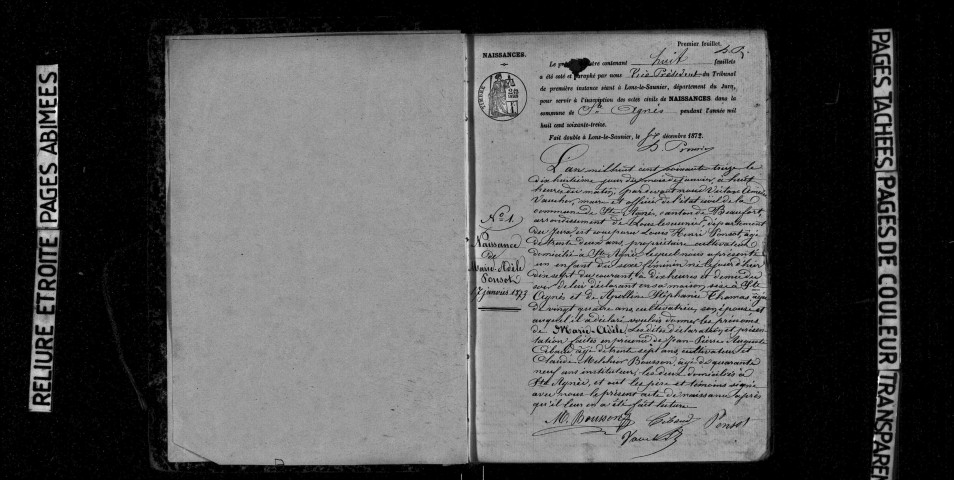 RELIURE ETROITE PAGES ABIMEES
Premier feuillet.
NAISSANCES.
Le contenant huit feuillets
a été coté et paraphé par nous Vice Président du Tribunal
de première instance séant à Lons-le-Saunier, département du Jura,
pour servir à l'inscription des actes civils de NAISSANCES, dans la
commune de Ste Agnès pendant l'année mil
huit cent soixante-treize.
Fait double à Lons-le-Saunier, le décembre 1872.
TIMBRE
L'an mil huit cent soixante treize le
dix huitième jour du mois de janvier, à huit
heures du matin, par devant nous
Vaucher, maire et officier de l'état civil de la
commune de Ste Agnès, canton de Beaufort,
arrondissement de Lons-le-Saunier, département
du Jura, est comparu Louis Henri Ponsot, âgé
de trente deux ans, propriétaire cultivateur
domicilié à Ste Agnès, lequel nous a présenté
un enfant du sexe féminin né le jour d'hier
dix sept du courant, à dix heures et demie du
soir de lui déclarant en sa maison, sise à Ste
Agnès et de Apolline Stéphanie Thomas âgée
de vingt quatre ans, cultivatrice, son épouse, et
auquel il a déclaré vouloir donner les prénoms
de Marie-Adèle, Les dites déclaration et présen-
tation faites en présence de Jean Pierre Auguste
Cibaud, âgé de trente sept ans, cultivateur et
Claude Melchior Bousson, âgé de quarante
neuf ans instituteur, les deux domiciliés à
Ste Agnès, et ont les père et témoins signé
avec nous le présent acte de naissance après
qu'il leur en a été fait lecture
M. Bousson Cibaud Ponsot
No 1.
Naissance
de
Marie-Adèle
Ponsot
17 janvier 1873
PAGES TACHEES PAGES DE COULEUR TRANSPAREN